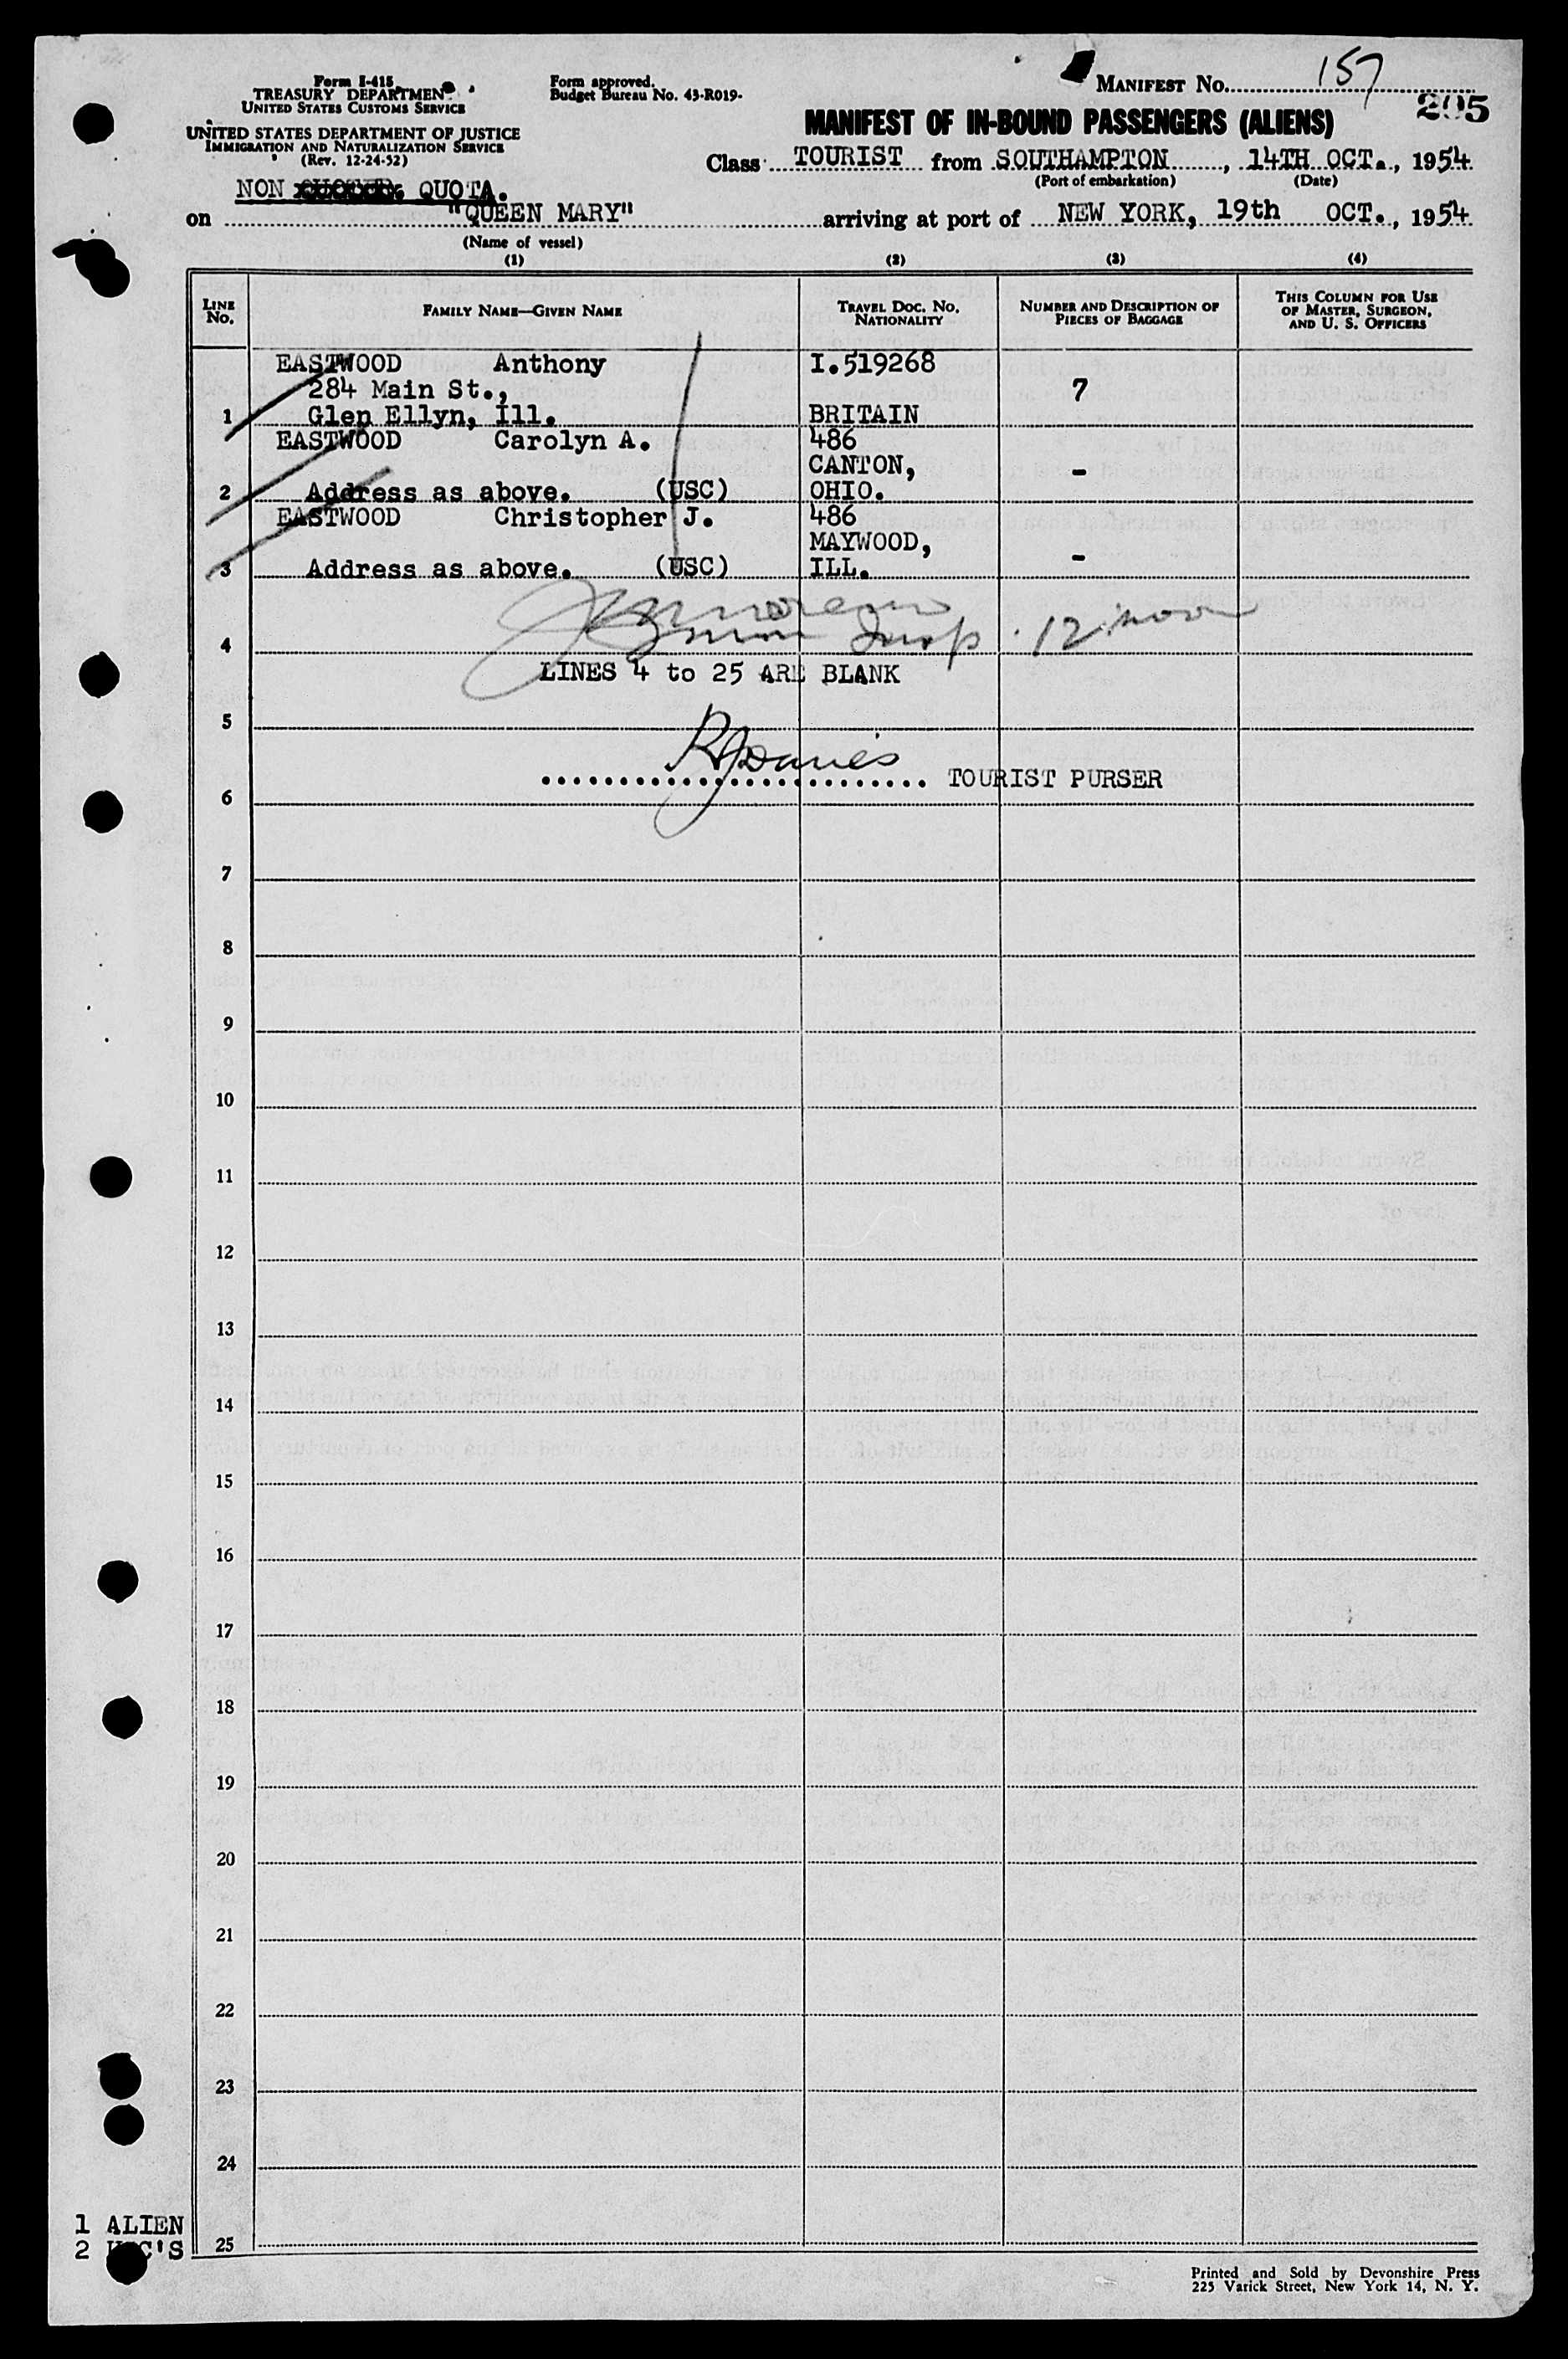 Form I-415
TREASURY DEPARTMENT
UNITED STATES CUSTOMS SERVICE
UNITED STATES DEPARTMENT OF JUSTICE
IMMIGRATION AND NATURALIZATION SERVICE
(Rev. 12-24-52)
Form approved.
Budget Bureau No. 43-R019-
MANIFEST No. 157
205
MANIFEST OF IN-BOUND PASSENGERS (ALIENS)
Class TOURIST from SOUTHAMPTON, 14TH OCT., 1954
(Port of embarkation) (Date)
NON QUOTA.
on "QUEEN MARY" arriving at port of NEW YORK, 19th OCT., 1954
(Name of vessel)
(1) (2) (3) (4)
LINE No. FAMILY NAME—GIVEN NAME TRAVEL DOC. No. NATIONALITY NUMBER AND DESCRIPTION OF PIECES OF BAGGAGE THIS COLUMN FOR USE OF MASTER, SURGEON, AND U. S. OFFICERS
EASTWOOD Anthony I.519268
284 Main St., 7
1 Glen Ellyn, Ill. BRITAIN
EASTWOOD Carolyn A. 486
CANTON, -
2 Address as above. (USC) OHIO.
EASTWOOD Christopher J. 486
MAYWOOD, -
3 Address as above. (USC) ILL.
Insp. 12 noon
4
LINES 4 to 25 ARE BLANK
5
RJDavies
TOURIST PURSER
6
7
8
9
10
11
12
13
14
15
16
17
18
19
20
21
22
23
24
1 ALIEN
2 USC'S
25
Printed and Sold by Devonshire Press
225 Varick Street, New York 14, N. Y.